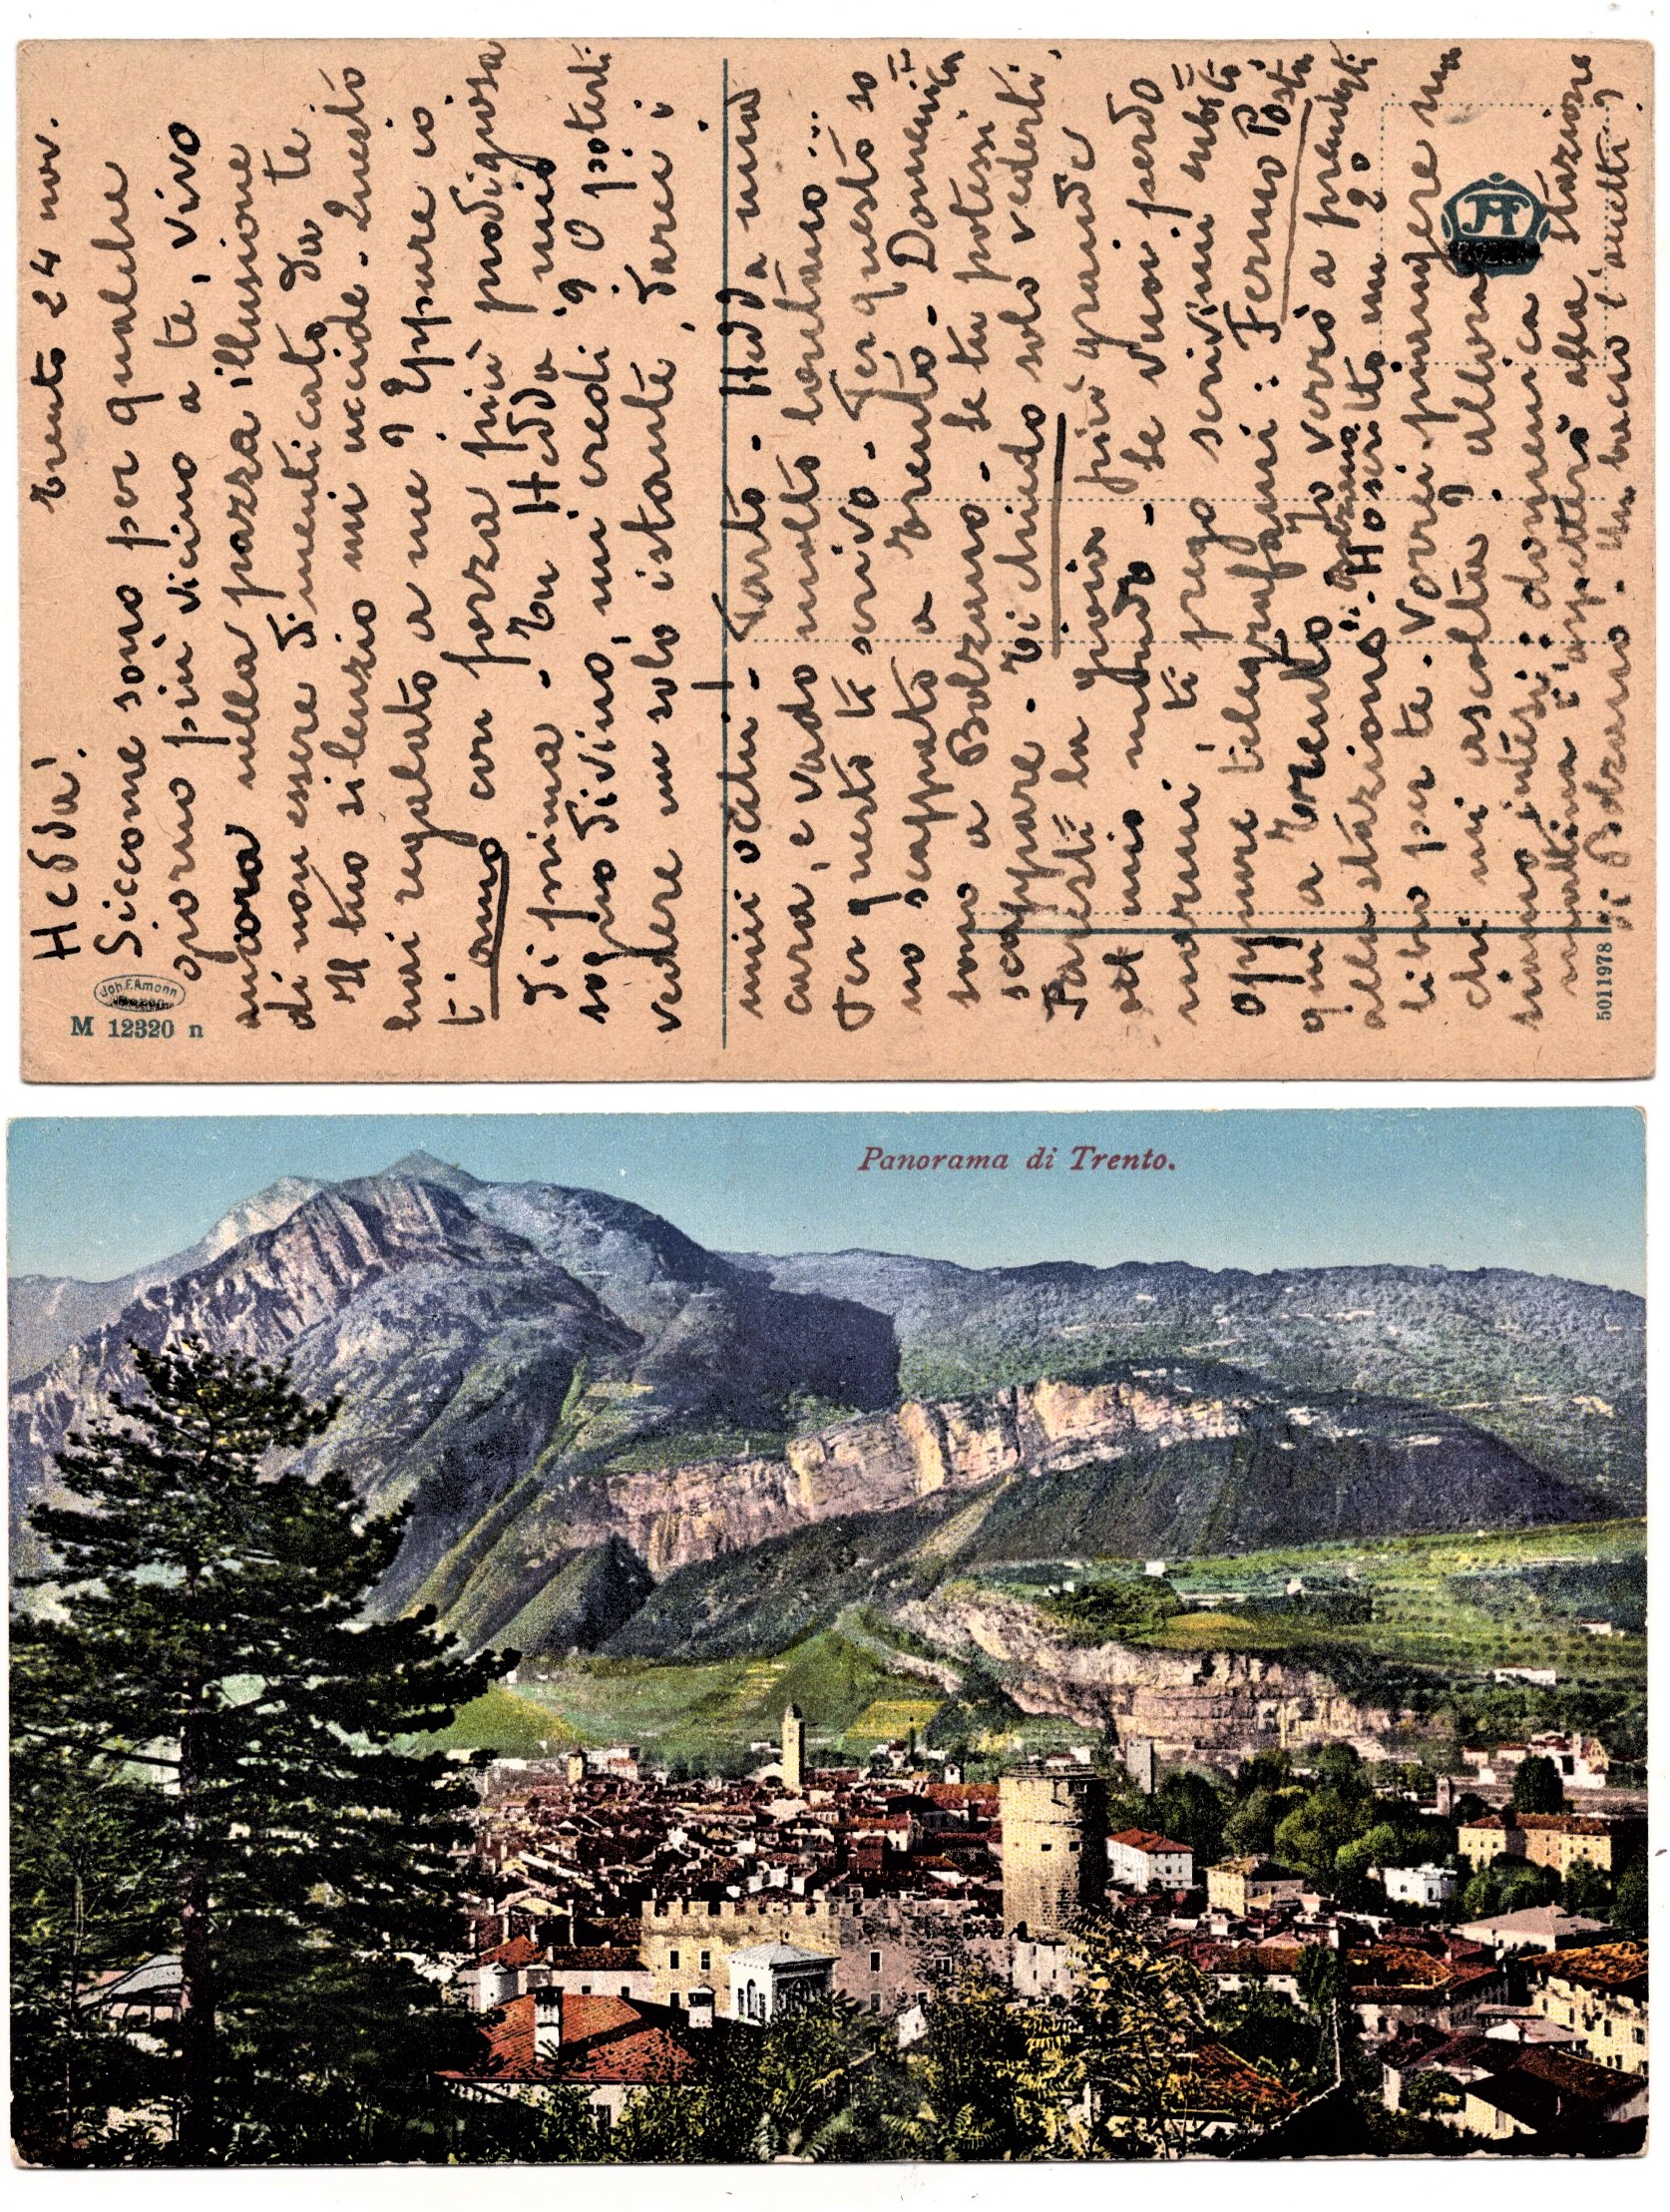 Trento 24 nov.
Hedda!
Siccome sono per qualche
giorno più vicino a te, vivo
ancora nella pazza illusione
di non essere dimenticato da te
Il tuo silenzio mi uccide. Questo
hai regalato a me? Eppure io
ti amo con forza più prodigiosa
di prima. Tu Hedda, mio
sogno divino, mi credi? O poterti
vedere un solo istante, darei i
miei occhi! Parto. Hedda mia
cara, e vado molto lontano...
Per questo ti scrivo. Per questo so
no scappato a Trento. Domenica
sono a Bolzano. Se tu potessi
scappare. Ti chiedo solo vederti,
Faresti la gioia più grande
del mio mondo. Se vuoi perdo
narmi, ti prego scrivimi subito,
oppure telegrafami: Fermo Posta
qui a Trento. Io verrò a prenderti
alla stazione di Bolzano. Ho scritto un 2º
libro per te. Vorrei piangere ma
chi mi ascolta? allora
siamo intesi: domenica
mattina ti aspetterò alla stazione
di Bolzano. Un bacio l'accetti?
Joh. F. Amonn
M 12320 n
5011978
Panorama di Trento.